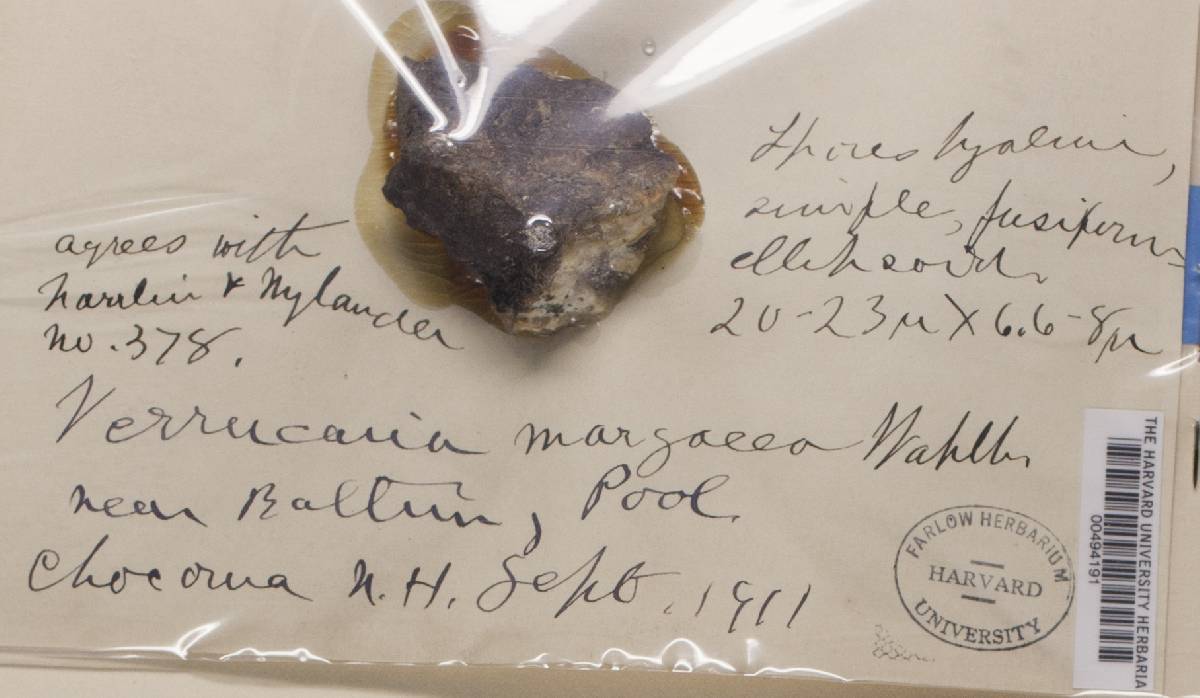 Spores hyaline,
simple, fusiform-
ellipsoid,
20-23µ X 6.6-8µ
agrees with
Norrlin & Nylander
no. 378.
Verrucaria margacea Wahlb.
near Pool
Chocorua N.H. Sept. 1911
FARLOW HERBARIUM
HARVARD
UNIVERSITY
THE HARVARD UNIVERSITY HERBARIA
00494191